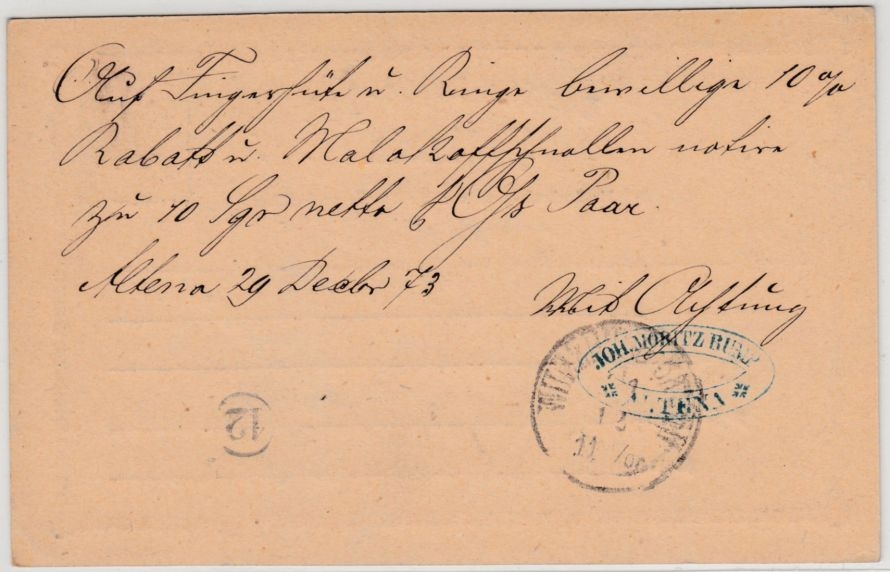 Auf Fingerhüte u. Ringe bewillige 10%
Rabatt u. Malakoffschnallen notire
zu 10 Sgr netto Paar.
Altena 29 Decbr 73
Mit Achtung
JOH. MORITZ RUMP
ALTENA
WIEN
12
11
12